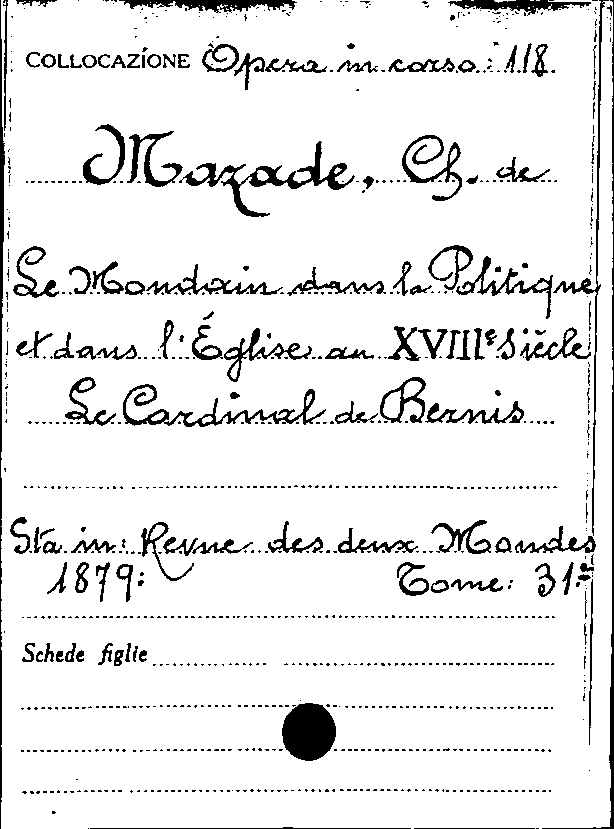 COLLOCAZIONE Opera in corso: 118.
Mazade, Ch. de
Le Mondain dans la Politique
et dans l'Église au XVIIIe Siècle
Le Cardinal de Bernis
Sta in: Revue des deux Mondes
1879: Tome: 31:
Schede figlie